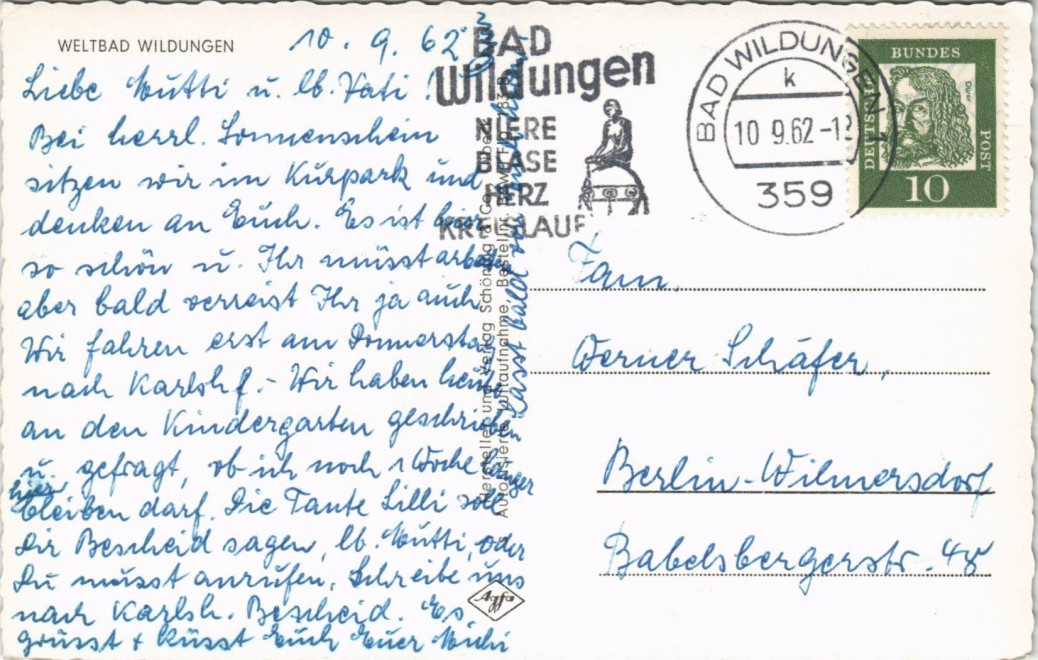 WELTBAD WILDUNGEN
10.9.62
Liebe Mutti u. lb. Vati!
Bei herrl. Sonnenschein
sitzen wir im Kurpark und
denken an Euch. Es ist hier
so schön u. Ihr müsst arbeiten
aber bald verreist Ihr ja auch.
Wir fahren erst am Donnerstag
nach Karlshf.- Wir haben heute
an den Kindergarten geschrieben
u. gefragt, ob ich noch 1 Woche länger
hier bleiben darf. Die Tante Lilli soll
Dir Bescheid sagen, lb. Mutti, oder
Du musst anrufen. Schreibe uns
nach Karlsh. Bescheid. Es
grüsst + küsst Euch Euer Michi
Lasst bald von
Hersteller und Verlag Schöning & Co
Autorisierte Luftaufnahme Bestellnr.
Agfa
BAD
Wildungen
NIERE
BLASE
HERZ
KREISLAUF
BAD WILDUNGEN 1
k
10.9.62-12
359
DEUTSCHE
BUNDES
POST
Dürer
10
Fam.
Werner Schäfer,
Berlin-Wilmersdorf
Babelsbergerstr. 48